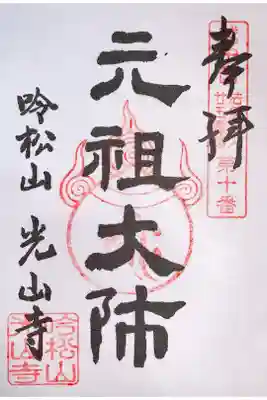 奉拝
第十番
元祖大师
吟松山 光山寺
吟松山
光山寺